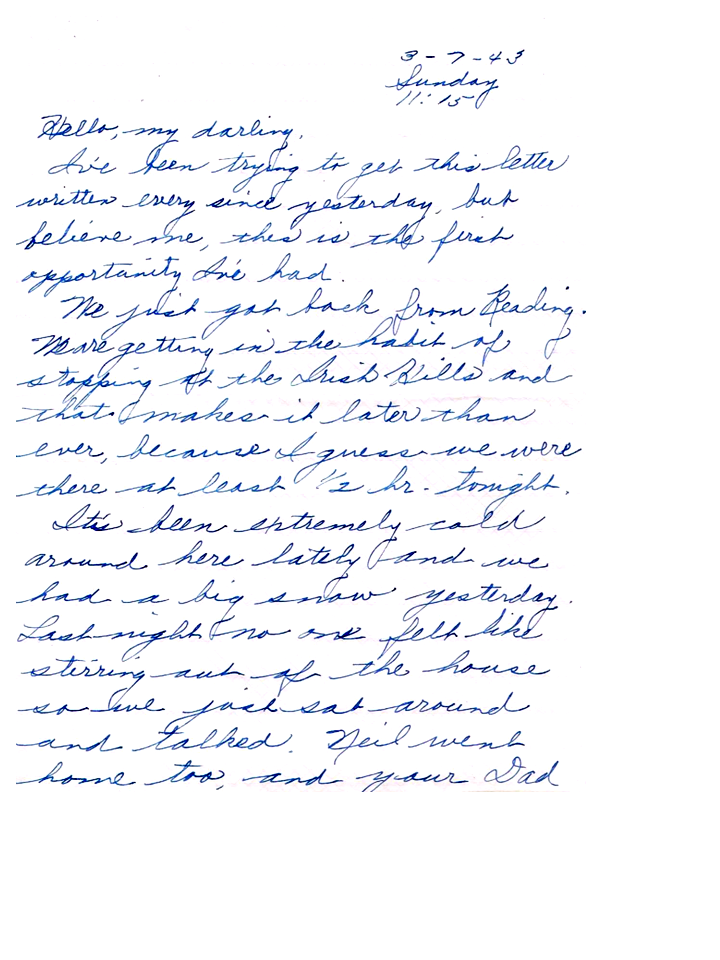 3-7-43
Sunday
11:15
Hello, my darling.
I've been trying to get this letter
written every since yesterday, but
believe me, this is the first
opportunity I've had.
We just got back from Reading.
We are getting in the habit of
stopping at the Irish Hills and
that makes it later than
ever, because I guess we were
there at least 1/2 hr. tonight.
It's been extremely cold
around here lately and we
had a big snow yesterday.
Last night no one felt like
stirring out of the house
so we just sat around
and talked. Neil went
home too, and your Dad